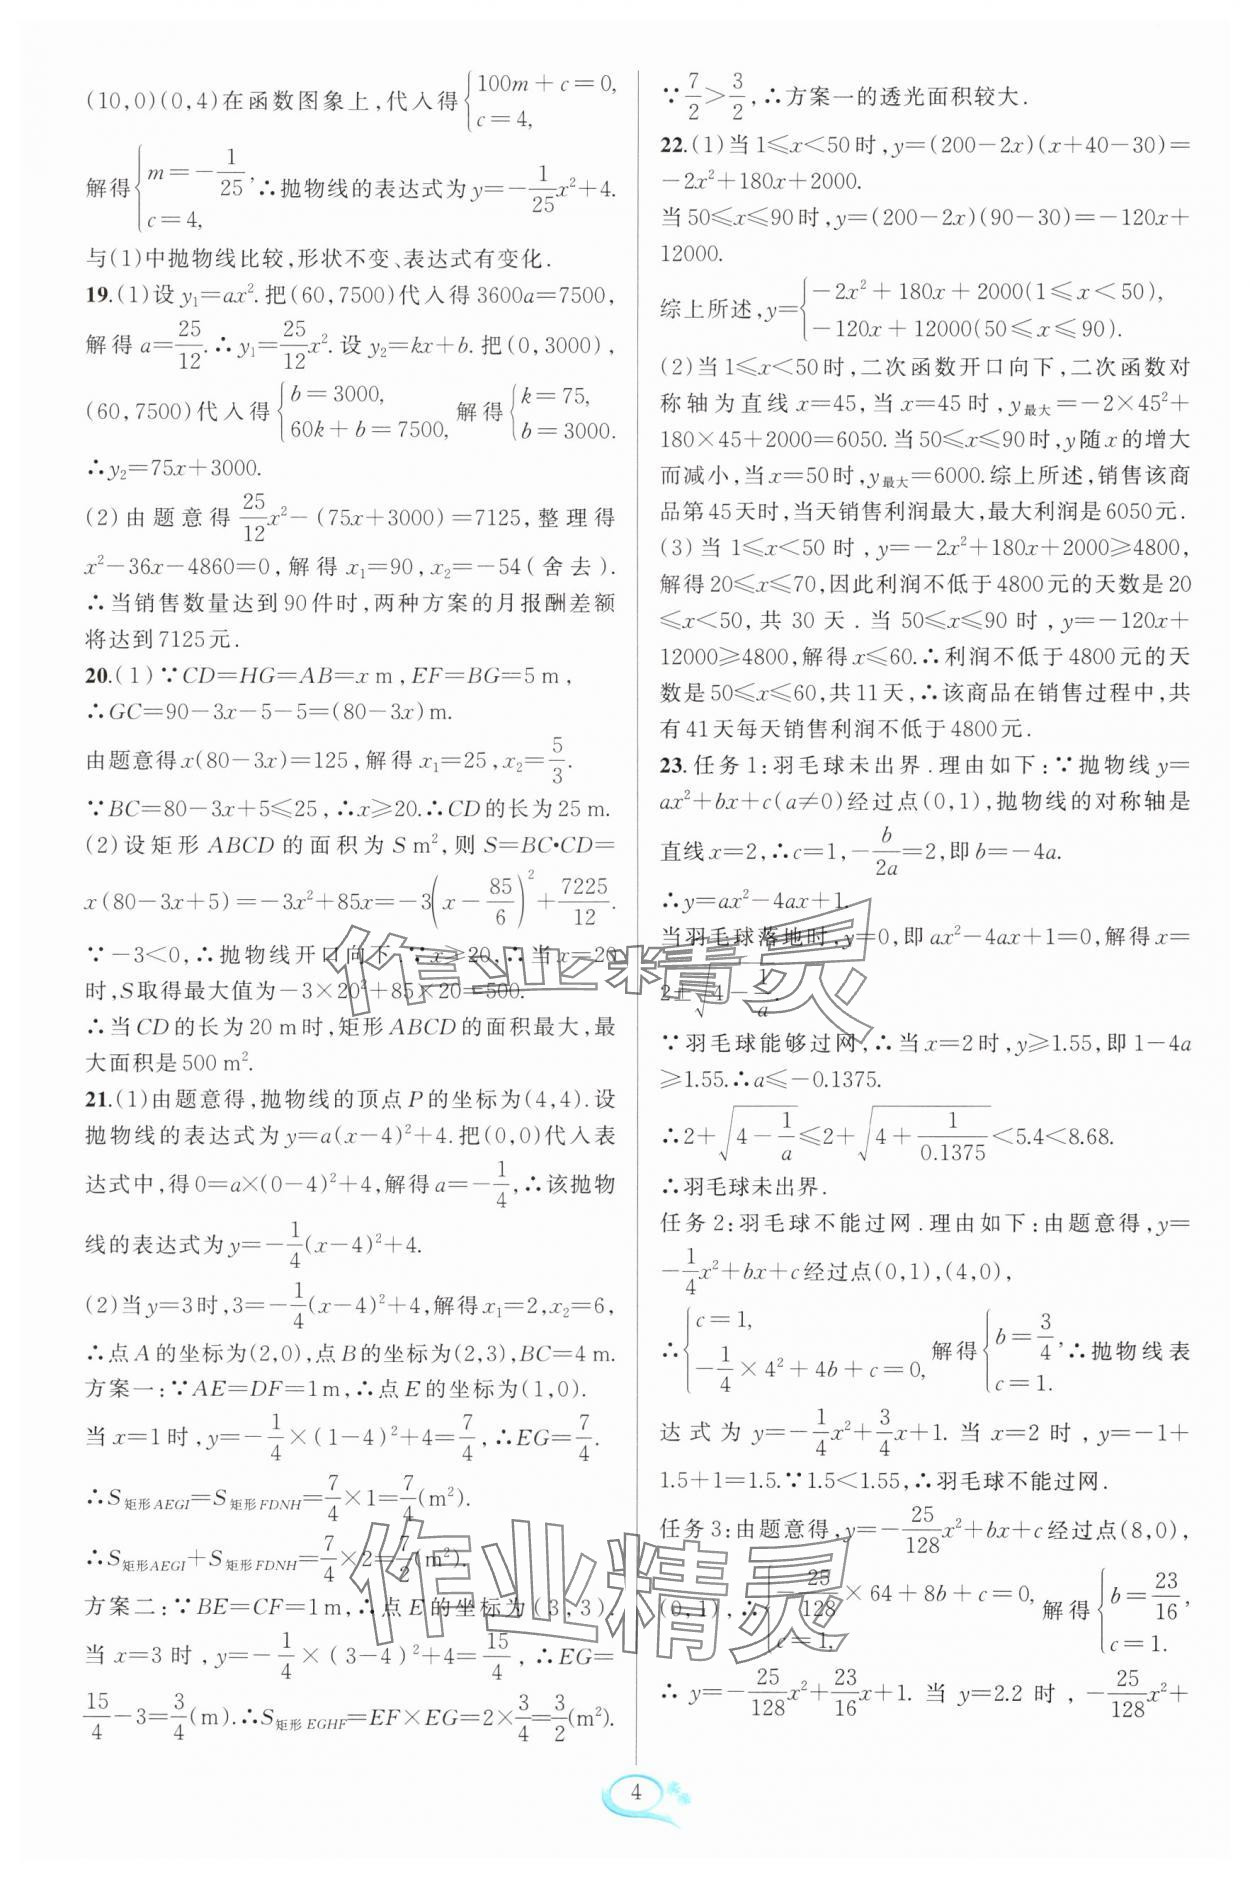 (10,0)(0,4)在函数图象上,代入得{100m+c=0, c=4,
解得{m=-1/25, c=4, ∴抛物线的表达式为y=-1/25x²+4.
与(1)中抛物线比较,形状不变、表达式有变化.
19.(1)设y₁=ax².把(60,7500)代入得3600a=7500,
解得a=25/12.∴y₁=25/12x².设y₂=kx+b.把(0,3000),
(60,7500)代入得{b=3000, 60k+b=7500, 解得{k=75, b=3000.
∴y₂=75x+3000.
(2)由题意得25/12x²-(75x+3000)=7125,整理得
x²-36x-4860=0,解得x₁=90,x₂=-54(舍去).
∴当销售数量达到90件时,两种方案的月报酬差额
将达到7125元.
20.(1)∵CD=HG=AB=x m,EF=BG=5 m,
∴GC=90-3x-5-5=(80-3x)m.
由题意得x(80-3x)=125,解得x₁=25,x₂=5/3.
∵BC=80-3x+5≤25,∴x≥20.∴CD的长为25 m.
(2)设矩形ABCD的面积为S m²,则S=BC·CD=
x(80-3x+5)=-3x²+85x=-3(x-85/6)²+7225/12.
∵-3<0,∴抛物线开口向下.∵x≥20,∴当x=20
时,S取得最大值为-3×20²+85×20=500.
∴当CD的长为20 m时,矩形ABCD的面积最大,最
大面积是500 m².
21.(1)由题意得,抛物线的顶点P的坐标为(4,4).设
抛物线的表达式为y=a(x-4)²+4.把(0,0)代入表
达式中,得0=a×(0-4)²+4,解得a=-1/4,∴该抛物
线的表达式为y=-1/4(x-4)²+4.
(2)当y=3时,3=-1/4(x-4)²+4,解得x₁=2,x₂=6,
∴点A的坐标为(2,0),点B的坐标为(2,3),BC=4 m.
方案一:∵AE=DF=1m,∴点E的坐标为(1,0).
当x=1时,y=-1/4×(1-4)²+4=7/4,∴EG=7/4.
∴S矩形AEGI=S矩形FDNH=7/4×1=7/4(m²).
∴S矩形AEGI+S矩形FDNH=7/4×2=7/2(m²).
方案二:∵BE=CF=1m,∴点E的坐标为(3,3).
当x=3时,y=-1/4×(3-4)²+4=15/4,∴EG=
15/4-3=3/4(m).∴S矩形EGHF=EF×EG=2×3/4=3/2(m²).
∵7/2>3/2,∴方案一的透光面积较大.
22.(1)当1≤x<50时,y=(200-2x)(x+40-30)=
-2x²+180x+2000.
当50≤x≤90时,y=(200-2x)(90-30)=-120x+
12000.
综上所述,y={-2x²+180x+2000(1≤x<50), -120x+12000(50≤x≤90).
(2)当1≤x<50时,二次函数开口向下,二次函数对
称轴为直线x=45,当x=45时,y最大=-2×45²+
180×45+2000=6050.当50≤x≤90时,y随x的增大
而减小,当x=50时,y最大=6000.综上所述,销售该商
品第45天时,当天销售利润最大,最大利润是6050元.
(3)当1≤x<50时,y=-2x²+180x+2000≥4800,
解得20≤x≤70,因此利润不低于4800元的天数是20
≤x<50,共30天.当50≤x≤90时,y=-120x+
12000≥4800,解得x≤60.∴利润不低于4800元的天
数是50≤x≤60,共11天,∴该商品在销售过程中,共
有41天每天销售利润不低于4800元.
23.任务1:羽毛球未出界.理由如下:∵抛物线y=
ax²+bx+c(a≠0)经过点(0,1),抛物线的对称轴是
直线x=2,∴c=1,-b/2a=2,即b=-4a.
∴y=ax²-4ax+1.
当羽毛球落地时,y=0,即ax²-4ax+1=0,解得x=
2+√(4-1/a).
∵羽毛球能够过网,∴当x=2时,y≥1.55,即1-4a
≥1.55.∴a≤-0.1375.
∴2+√(4-1/a)≤2+√(4+1/0.1375)<5.4<8.68.
∴羽毛球未出界.
任务2:羽毛球不能过网.理由如下:由题意得,y=
-1/4x²+bx+c经过点(0,1),(4,0),
∴{c=1, -1/4×4²+4b+c=0, 解得{b=3/4, c=1. ∴抛物线表
达式为y=-1/4x²+3/4x+1.当x=2时,y=-1+
1.5+1=1.5.∵1.5<1.55,∴羽毛球不能过网.
任务3:由题意得,y=-25/128x²+bx+c经过点(8,0),
(0,1),∴{-25/128×64+8b+c=0, c=1, 解得{b=23/16, c=1.
∴y=-25/128x²+23/16x+1.当y=2.2时,-25/128x²+
4
作业精灵
作业精灵